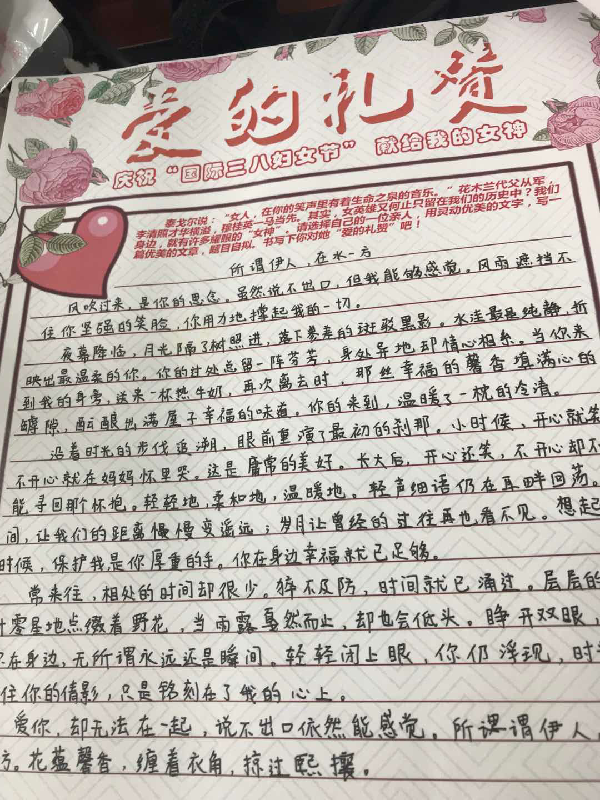 爱的礼赞
庆祝“国际三八妇女节” 献给我的女神
泰戈尔说：“女人，在你的笑声里有着生命之泉的音乐。”花木兰代父从军，
李清照才华横溢，穆桂英一马当先。其实，女英雄又何止只留在我们的历史中？我们
身边，就有许多耀眼的“女神”。请选择自己的一位亲人，用灵动优美的文字，写一
篇优美的文章，题目自拟。书写下你对她“爱的礼赞”吧！
所谓伊人 在水一方
风吹过来，是你的思念。虽然说不出口，但我能够感觉。风雨遮挡不
住你坚强的笑脸，你用力地撑起我的一切。
夜幕降临，月光隔了树照进，落下参差的斑驳黑影。水洼最是纯静，折
映出最温柔的你。你的过处总留一阵芬芳，身处异地却情心相系。当你来
到我的身旁，送来一杯热牛奶，再次离去时，那丝幸福的馨香填满心的
罅隙，酝酿出满屋子幸福的味道。你的来到，温暖了一枕的冷清。
沿着时光的步伐追溯，眼前重演了最初的刹那。小时候，开心就笑
不开心就在妈妈怀里哭。这是庸常的美好。长大后，开心还笑，不开心却不
能寻回那个怀抱。轻轻地，柔和地，温暖地。轻声细语仍在耳畔回荡。
间，让我们的距离慢慢变遥远；岁月让曾经的过往再也看不见。想起
时候，保护我是你厚重的手。你在身边幸福就已足够。
常来往，相处的时间却很少。猝不及防，时间就已涌过。层层的
叶零星地点缀着野花，当雨露戛然而止，却也会低头。睁开双眼，
在身边，无所谓永远还是瞬间。轻轻闭上眼，你仍浮现，时
住你的倩影，只是铭刻在了我的心上。
爱你，却无法在一起，说不出口依然能感觉。所谓谓伊人，
方。花蕴馨香，缠着衣角，掠过熙攘。